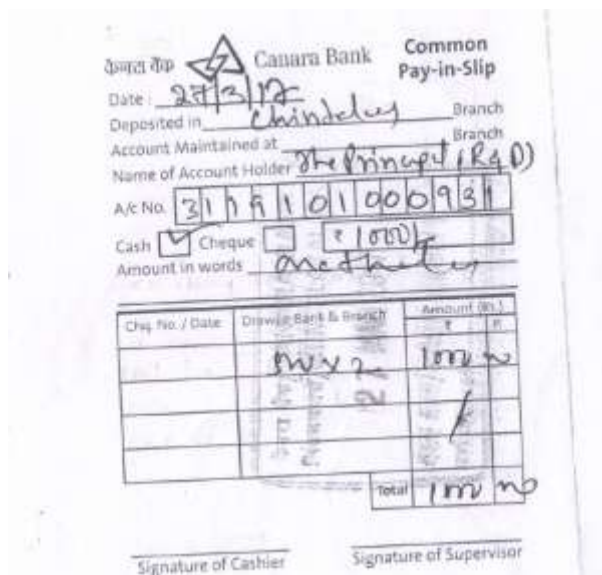 केनरा बैंक Canara Bank Common
Pay-in-Slip
Date : 27/3/17
Deposited in Branch
Account Maintained at Branch
Name of Account Holder The Principal (R&D)
A/c No. 3119101000931
Cash ✓ Cheque ₹ 1000/-
Amount in words
Chq. No. / Date Drawee Bank & Branch Amount (Rs.)
₹ P.
500 x 2 1000 00
Total 1000 00
Signature of Cashier Signature of Supervisor